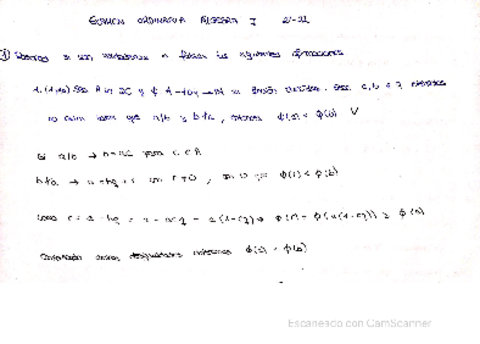 EXAMEN ORDINARIA ÁLGEBRA I 21-22
① Demostrar si son verdaderas o falsas las siguientes afirmaciones
Sea A un DE y φ: A-{0} → ℕ su función euclídea. Sea a, b ∈ A
no nulos tales que a/b y b∤a, entonces φ(a) < φ(b) V
Si a/b → b = ac para c ∈ A
b∤a → a = bq + r con r ≠ 0, φ(r) < φ(b)
Como r = a - bq = a - acq = a(1-cq) → φ(r) = φ(a(1-cq)) ≥ φ(a)
desigualdades tenemos φ(a) < φ(b)
Escaneado con CamScanner